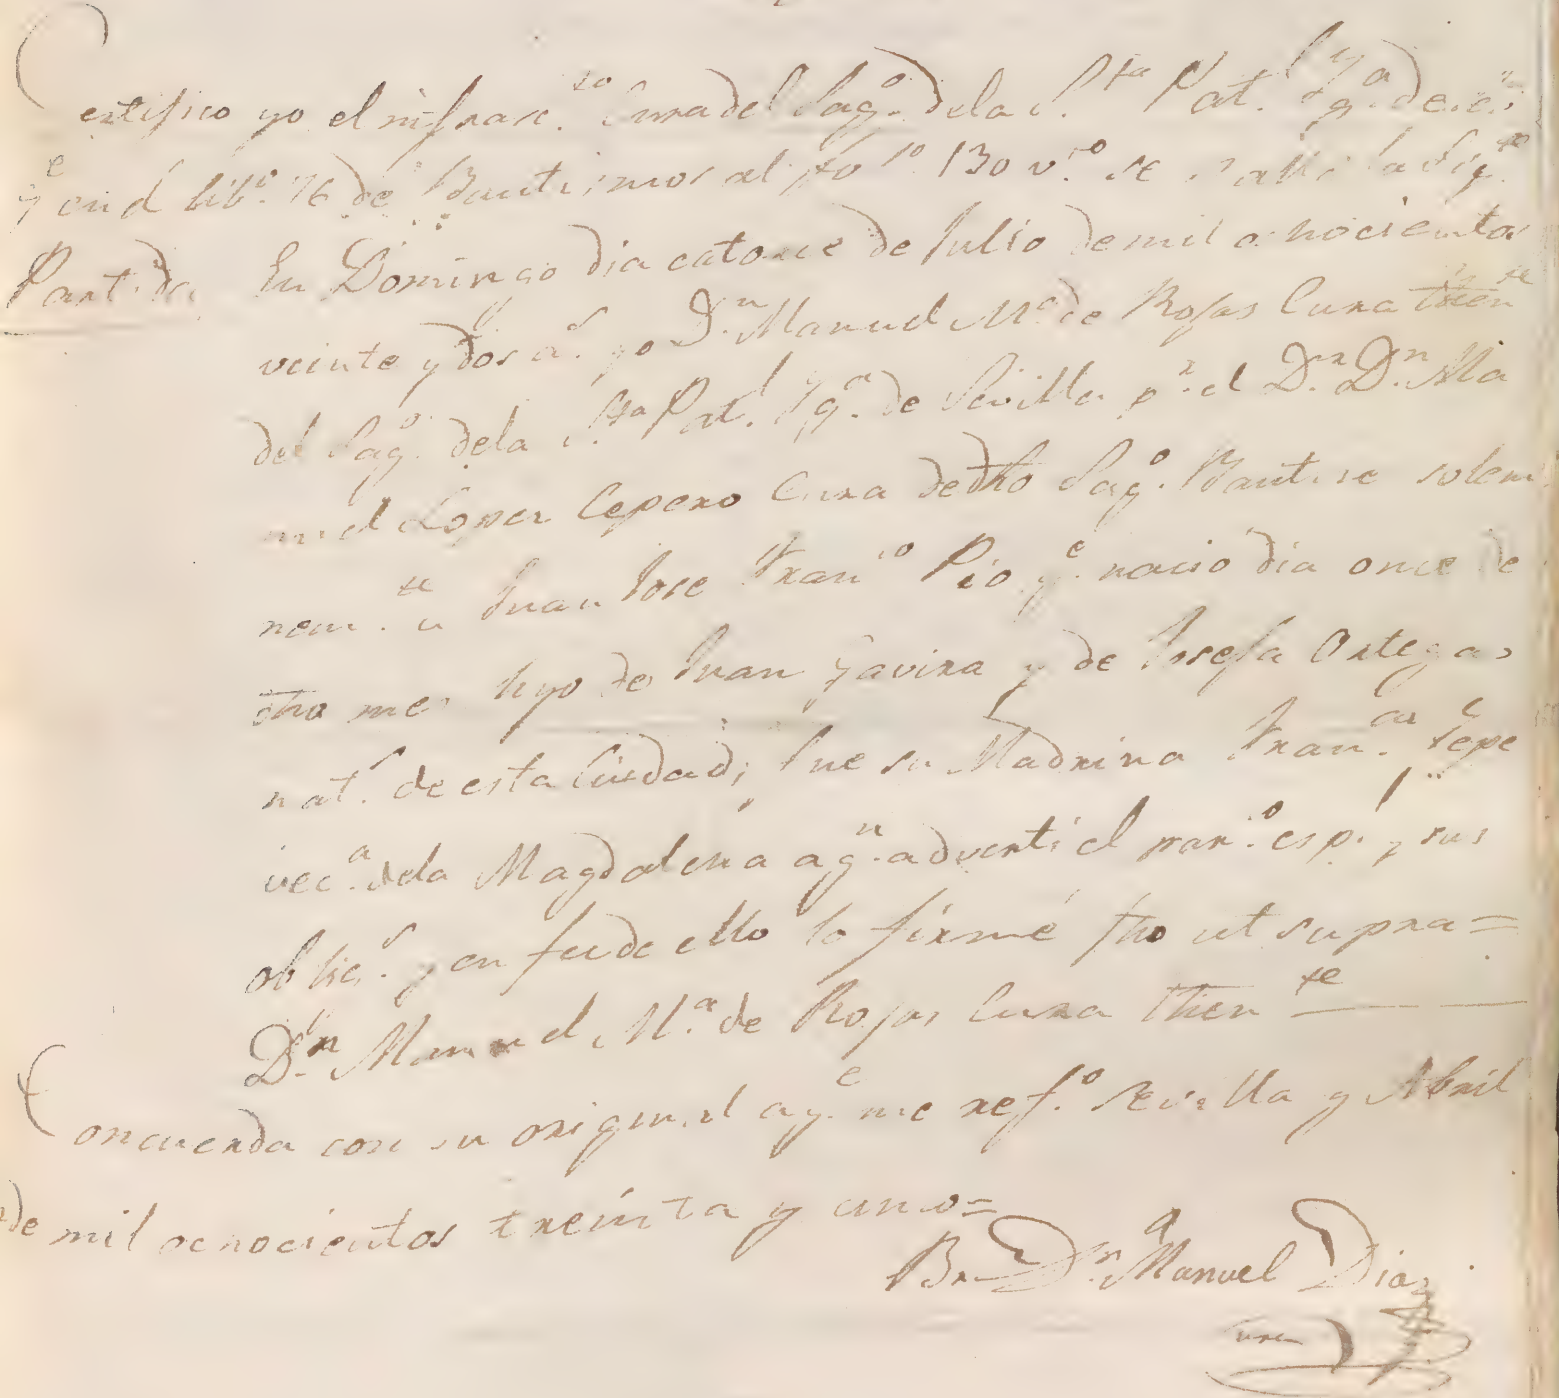 Certifico yo el infrasc.to Cura del Sag.o de la S.ta Pat.l Yg.a de
q.e en el lib.o 76 de Bautismos al fo 130 v.to se halla la sig.te
Partida En Domingo dia catorce de Julio de mil ochocientos
veinte y dos a.s yo D.n Manuel M.a de Rojas Cura then.te
del Sag.o de la S.ta Pat.l Yg.a de Sevilla p.r el D.r D.n Ma
nuel Lopez Cepero Cura de dho Sag.o Bautise solem
nem.te a Juan Jose Fran.co Pio q.e nacio dia once de
dho mes hijo de Juan Gavira y de Josefa Ortega
nat.s de esta Ciudad; fue su Madrina Fran.ca
vec.a de la Magdalena a q.n adverti el par.o esp.l y sus
oblig.s y en fee de ello lo firmé fho ut supra =
D.n Manuel M.a de Rojas Cura then.te
Concuerda con su original a q.e me ref.o Sevilla y Abril
de mil ochocientos treinta y uno =
Br. D.n Manuel Diaz
Cura